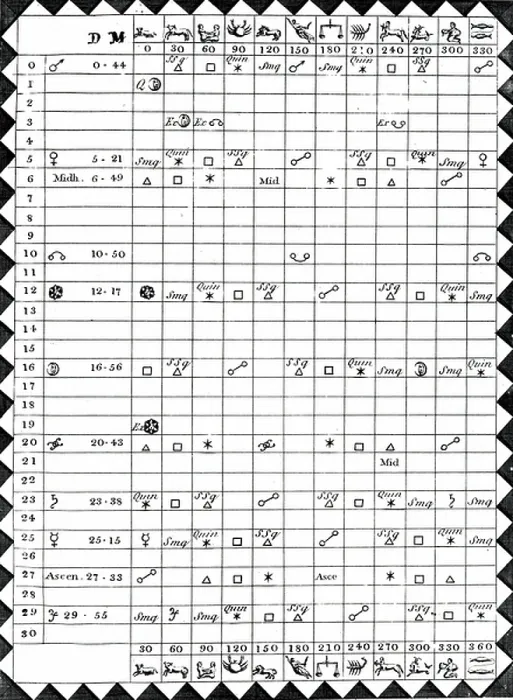 D M
0 30 60 90 120 150 180 210 240 270 300 330
0 ♂ 0·44 SSq △ □ Quin ⚹ Smq ♂ Smq Quin ⚹ □ SSq △ ☍
1 Q
2
3 Ex Ex ☊ Ex ☋
4
5 ♀ 5·21 Smq Quin ⚹ □ SSq △ ☍ SSq △ □ Quin ⚹ Smq ♀
6 Midh. 6·49 △ □ ⚹ Mid ⚹ □ △ ☍
7
8
9
10 ☊ 10·50 ☋ ☊
11
12 12·17 Smq Quin ⚹ □ SSq △ ☍ SSq △ □ Quin ⚹ Smq
13
14
15
16 16·56 □ SSq △ ☍ SSq △ □ Quin ⚹ Smq Smq Quin ⚹
17
18
19 Ex
20 20·43 △ □ ⚹ ⚹ □ △ ☍
21 Mid
22
23 ♄ 23·38 Quin ⚹ □ SSq △ ☍ SSq △ □ Quin ⚹ Smq ♄ Smq
24
25 ☿ 25·15 ☿ Smq Quin ⚹ □ SSq △ ☍ SSq △ □ Quin ⚹ Smq
26
27 Ascen. 27·33 ☍ △ □ ⚹ Asce ⚹ □ △
28
29 ♃ 29·55 Smq ♃ Smq Quin ⚹ □ SSq △ ☍ SSq △ □ Quin ⚹
30
30 60 90 120 150 180 210 240 270 300 330 360